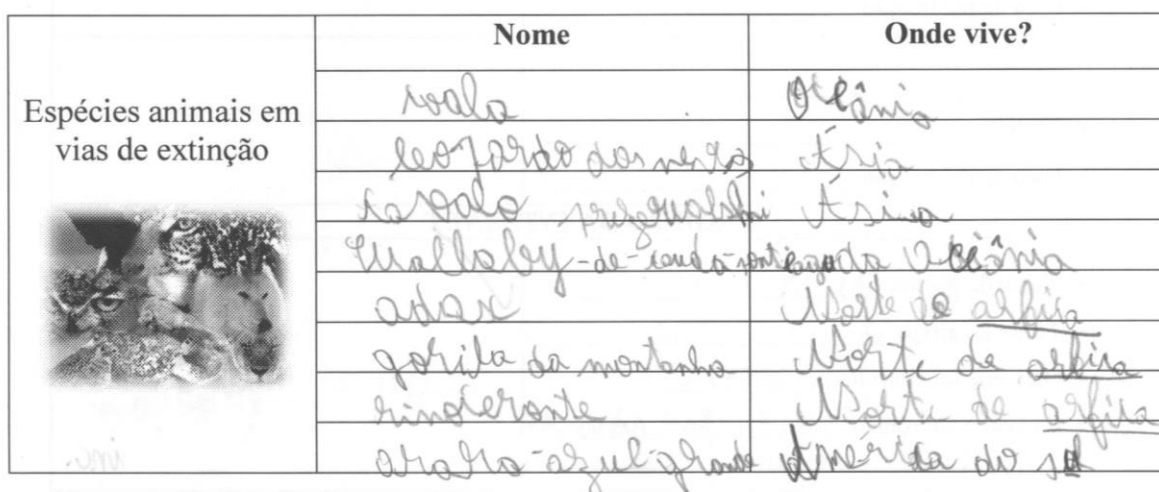 Nome Onde vive?
Espécies animais em
vias de extinção
koala Oceânia
leopardo das neves Ásia
cavalo przewalski Ásia
Wallaby-de-cauda- Oceânia
adax Norte de arfica
gorila da montanha Norte de arfica
rinoceronte Norte de arfica
arara-azul-grande América do sul